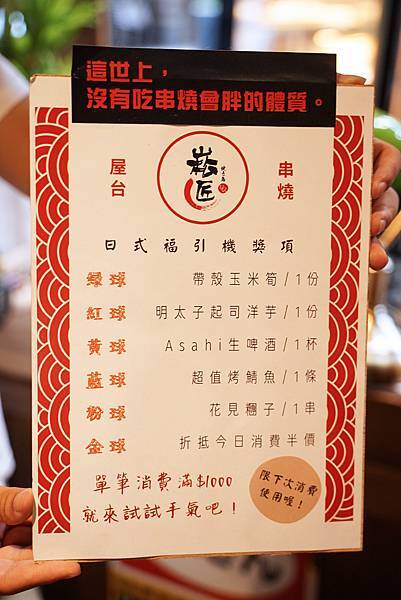 這世上，
沒有吃串燒會胖的體質。
屋台 崧匠 串燒
日式福引機獎項
綠球 帶殼玉米筍/1份
紅球 明太子起司洋芋/1份
黃球 Asahi生啤酒/1杯
藍球 超值烤鯖魚/1條
粉球 花見糰子/1串
金球 折抵今日消費半價
單筆消費滿$1000
就來試試手氣吧！
限下次消費
使用喔！